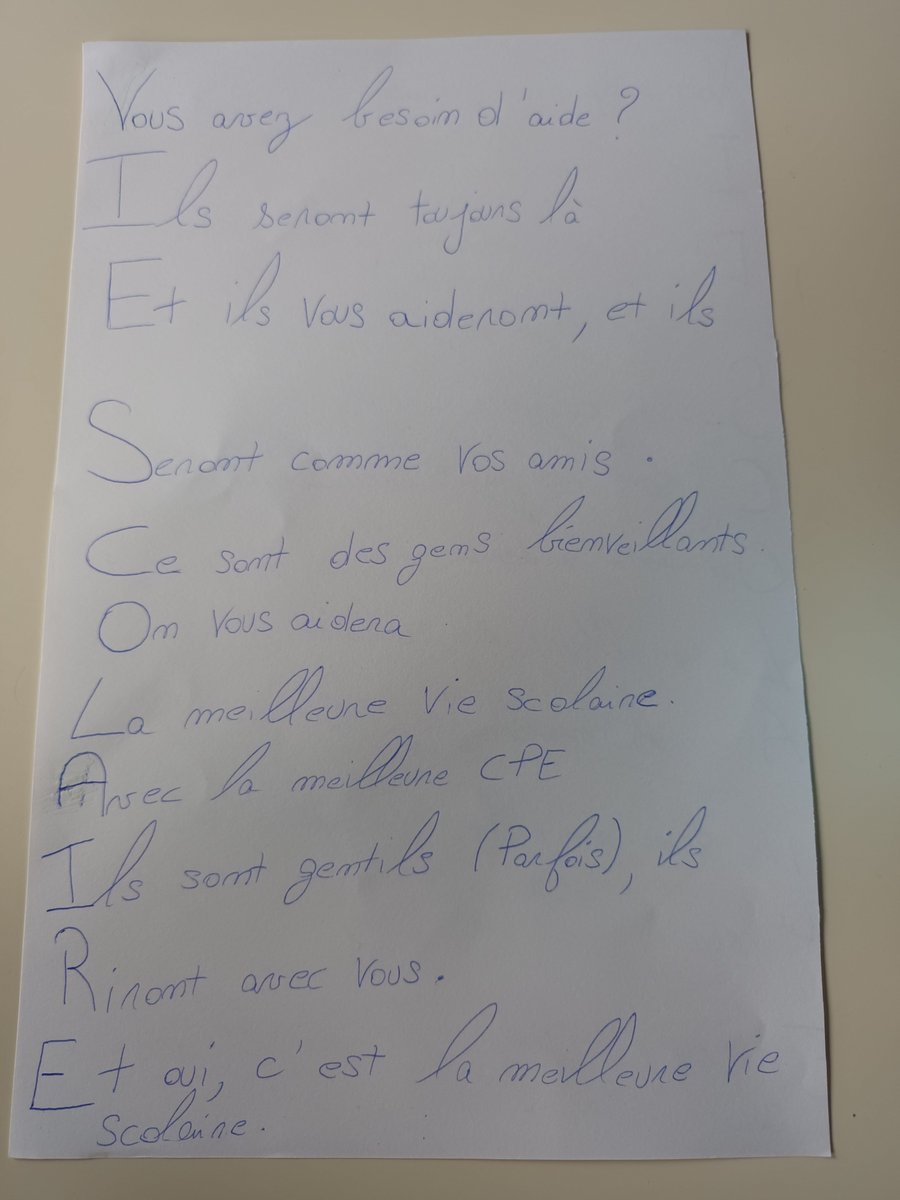 Vous avez besoin d'aide ?
Ils seront toujours là
Et ils vous aideront, et ils
Seront comme vos amis.
Ce sont des gens bienveillants.
On vous aidera
La meilleure vie scolaire.
Avec la meilleure CPE
Ils sont gentils (Parfois), ils
Riront avec vous.
Et oui, c'est la meilleure vie
scolaire.